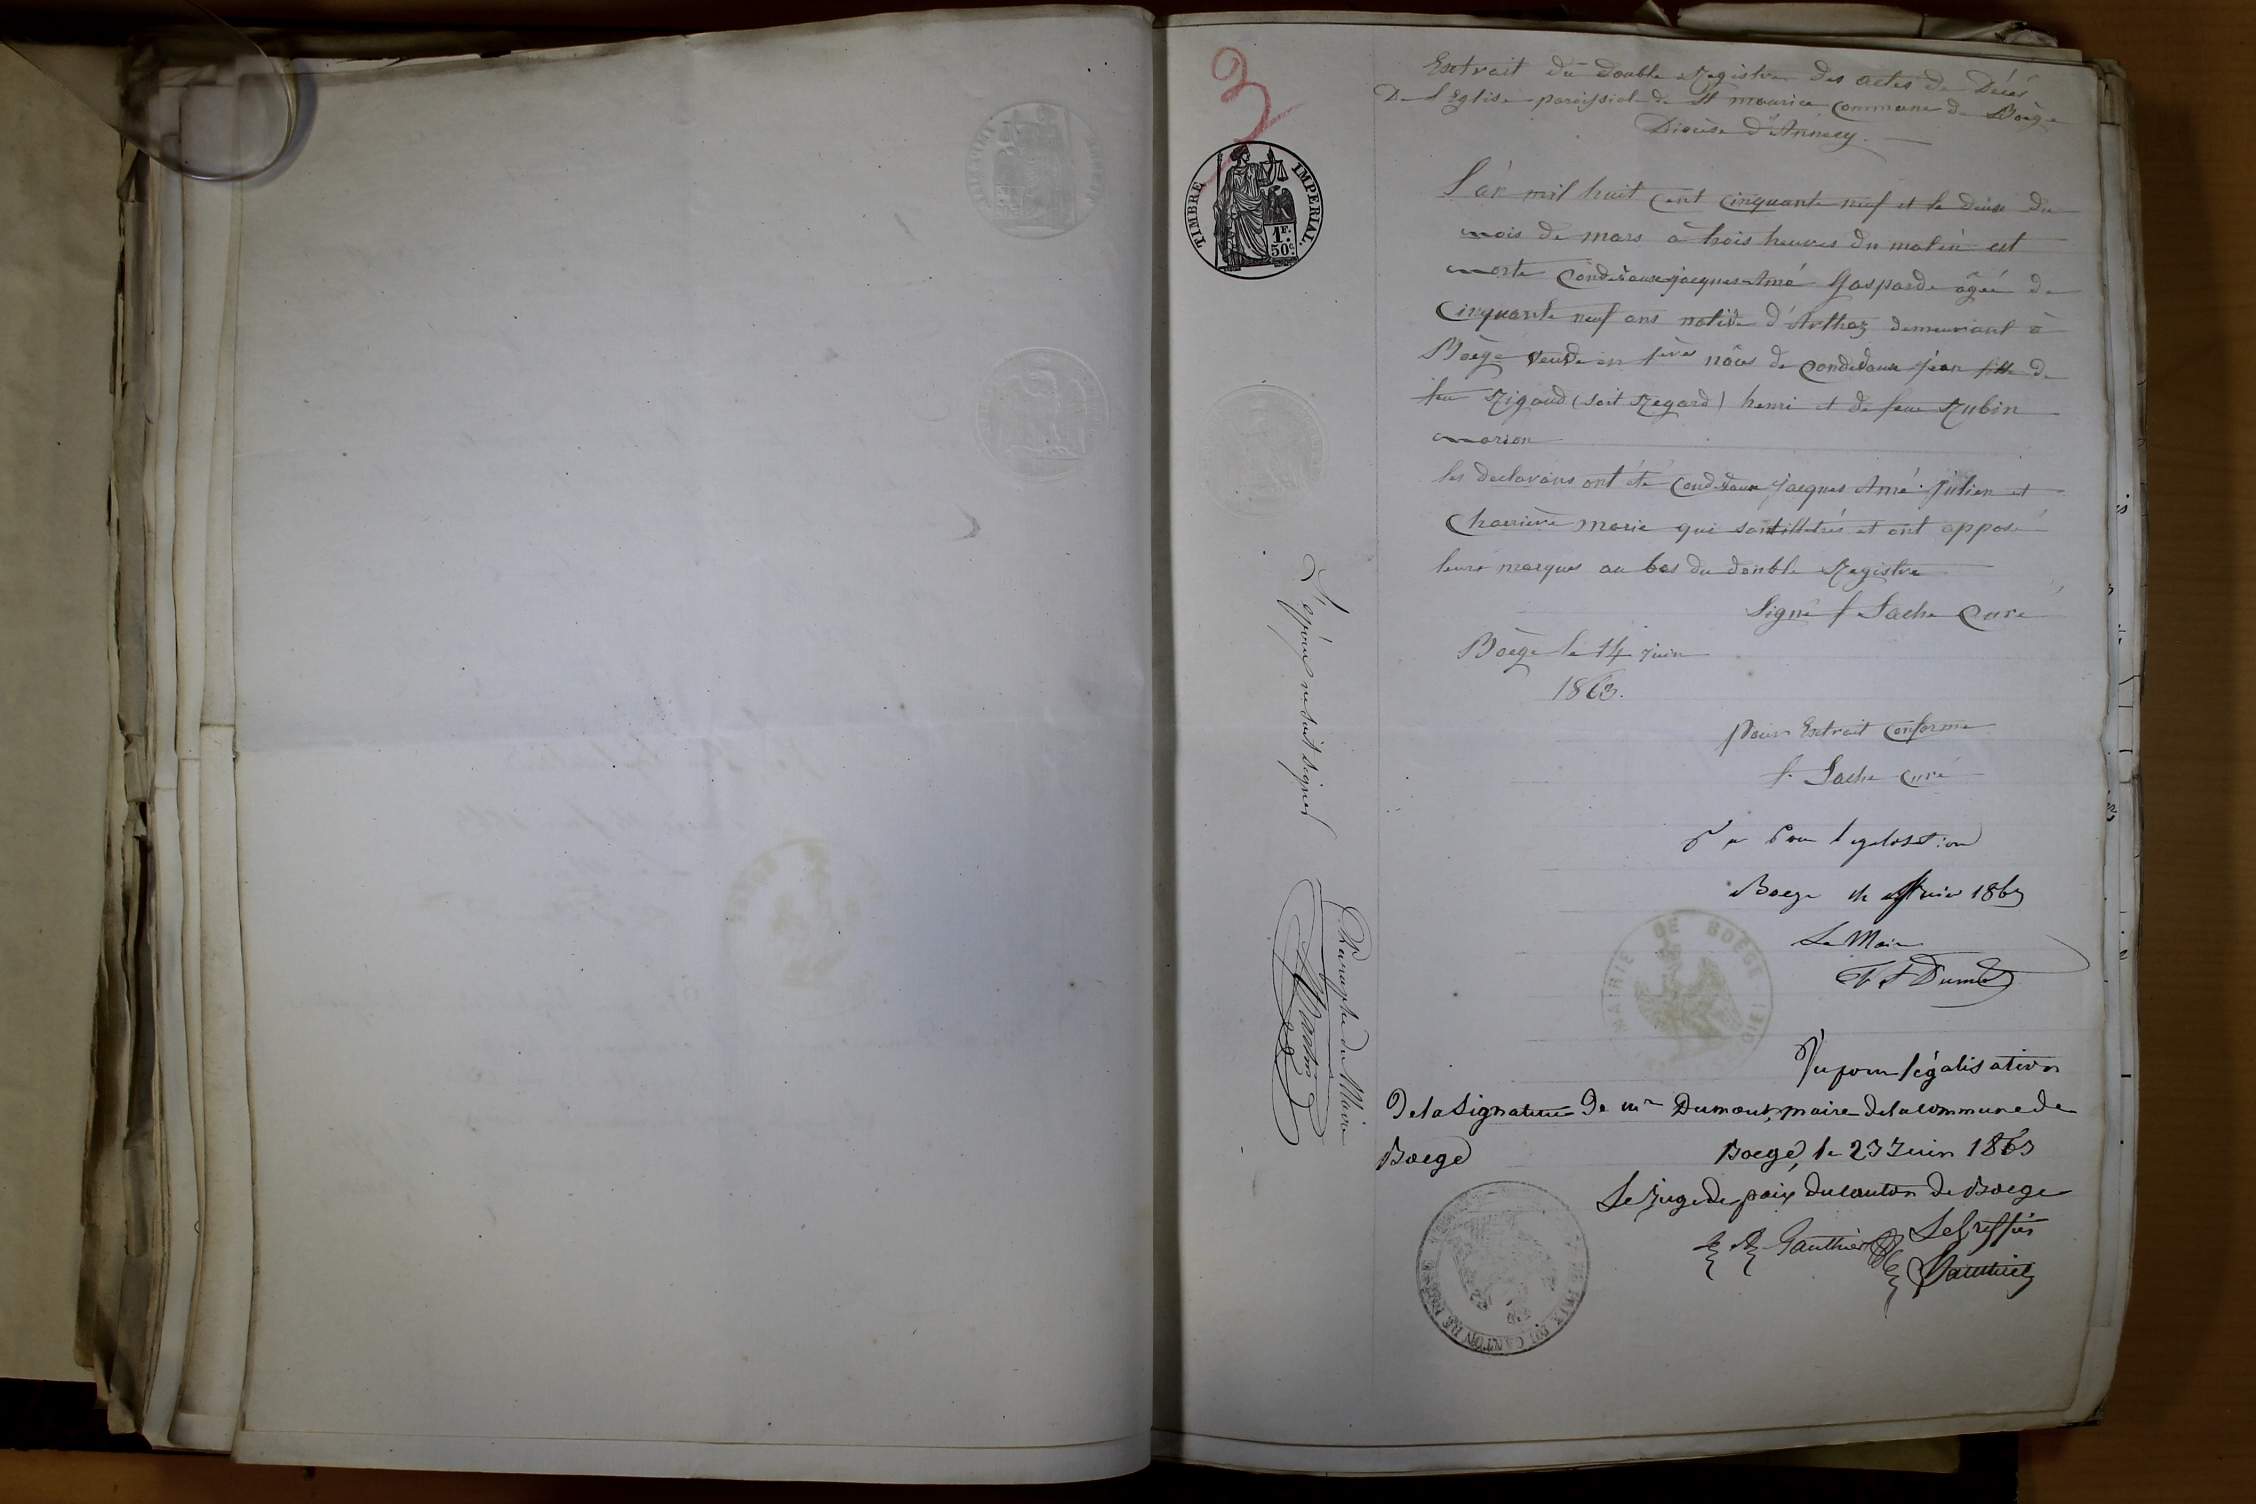 3
TIMBRE IMPERIAL
1F. 50c.
Extrait du double Registre des actes de Décés
De l'Eglise paroissial de St maurice Commune de Boëge
Diocèse d'Annecy.
L'an mil huit Cent Cinquante neuf et le deux du
mois de mars à trois heures du matin est
morte Condevaux jacques Amé Gasparde âgée de
Cinquante neuf ans native d'Arthaz demeurant à
Boëge veuve en 1ères nôces de Condevaux jéan fille de
feu Rigaud (soit Regard) henri et de feue Rubin
marion
les declarans ont été Condevaux jacques Amé julien et
Charrière marie qui sont illétrés et ont apposé
leurs marques au bas du double Registre
Signé f Sache Curé
Boëge le 14 juin
1863.
pour Extrait Conforme
f. Sache Curé
Vu Pour legalisation
Boege le juin 1863
Le Maire
Dumont
MAIRIE DE BOËGE
Vu pour légalisation
De la Signature De mr Dumont, maire de la commune de
Boege
Boege, le 23 Juin 1863
Le Juge de paix du canton de Boege
Gauthier Le Greffier
L'époux ne sait signer
Paraphe du Maire